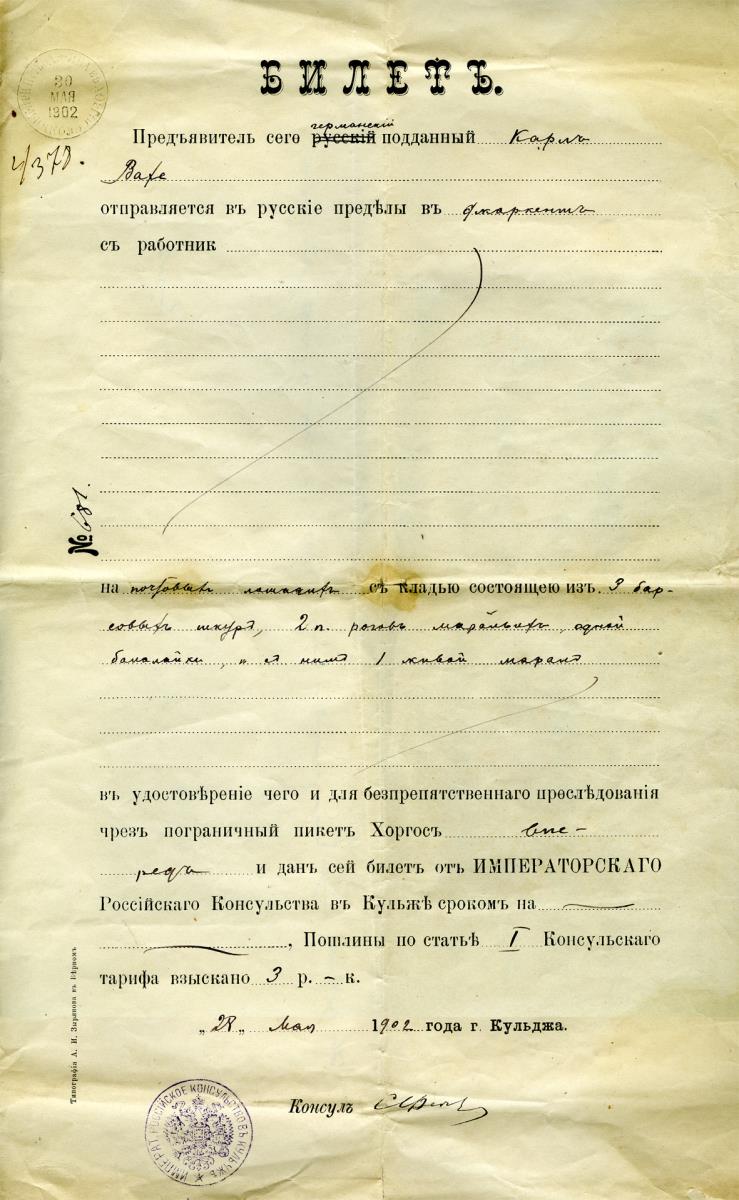 БИЛЕТЪ.
30
МАЯ
1902
германскій
Предъявитель сего русскій подданный Карлъ
отправляется въ русскіе предѣлы въ Джаркентъ
съ работник
№ 681.
на почтовыхъ лошадяхъ съ кладью состоящею изъ 3 бар-
совыхъ шкуръ, 2 п. роговъ маральихъ, одной
балалайки, и съ нимъ 1 живой маралъ
въ удостовѣреніе чего и для безпрепятственнаго прослѣдованія
чрезъ пограничный пикетъ Хоргосъ впе-
редъ и данъ сей билетъ отъ ИМПЕРАТОРСКАГО
Россійскаго Консульства въ Кульжѣ срокомъ на
, Пошлины по статьѣ I Консульскаго
тарифа взыскано 3 р. – к.
„28„ Мая 1902 года г. Кульджа.
Консулъ
ИМПЕРАТ. РОССІЙСКОЕ КОНСУЛЬСТВО ВЪ КУЛЬЧЖѢ
Типографія А. И. Зырянова въ Вѣрномъ